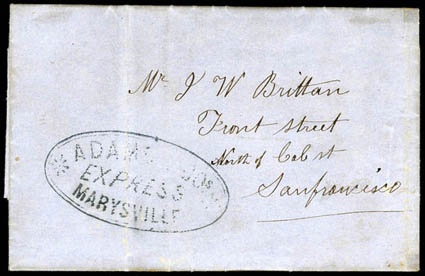 Mr J W Brittan
Front street
North of Cal st
Sanfrancisco
ADAMS & COS
EXPRESS
MARYSVILLE